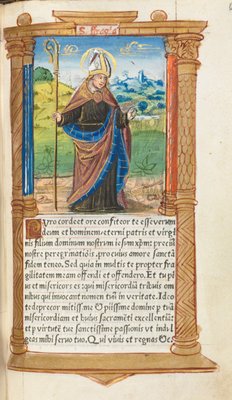 Puro corde et ore confiteor te esse verum
deum et hominem: eterni patris et virgi
nis filium dominum nostrum iesm xpm: preciũ
nostre peregrinatiõis. pro cuius amore sanctã
fidem teneo. Sed quia in multis te propter fra
gilitatem meam offendi et offendero. Et tu pi
us et misericors es qui misericordiã tribuis om
nibus qui inuocant nomen tuũ in veritate. Ideo
te deprecor mitissime O piissime domine p tuã
misericordiam et huius sacramẽti excellentiã:
et p virtutẽ tue sanctissime passionis vt indul
geas michi seruo tuo. Qui viuis et regnas &c